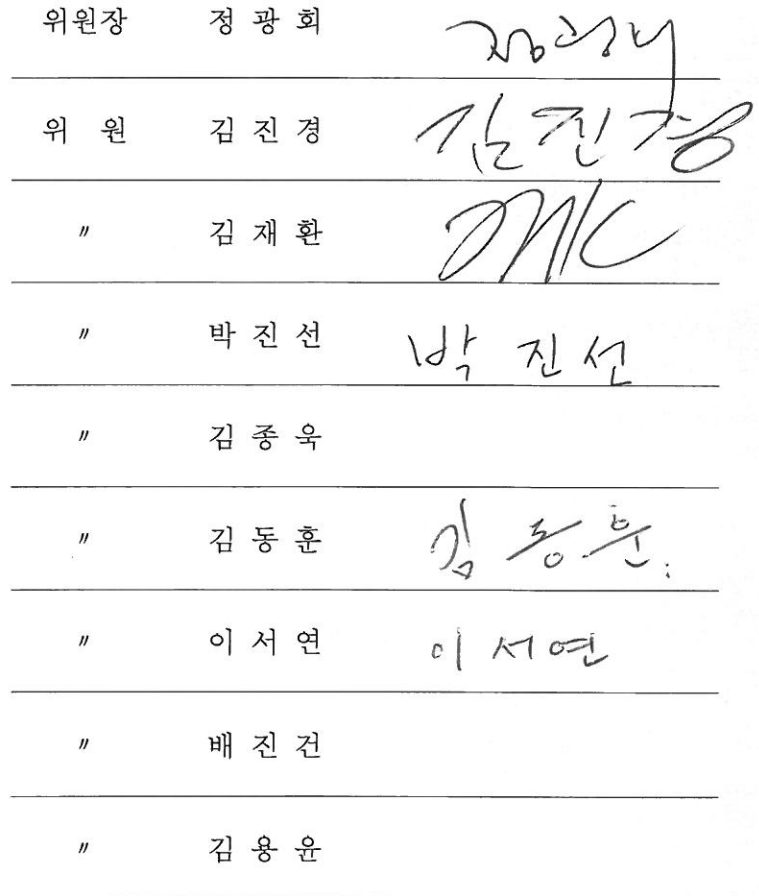 위원장 정 광 회 정광회
위 원 김 진 경 김진경
〃 김 재 환
〃 박 진 선 박 진 선
〃 김 종 욱
〃 김 동 훈 김 동 훈
〃 이 서 연 이 서 연
〃 배 진 건
〃 김 용 윤